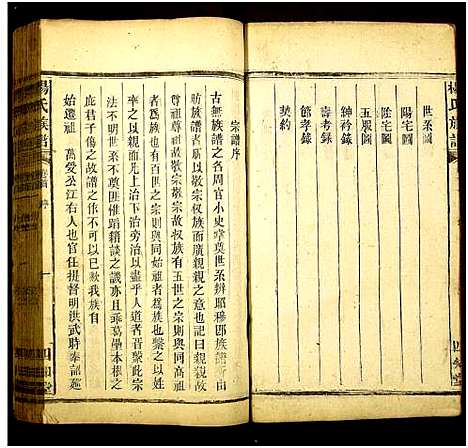 世系圖
陽宅圖
陰宅圖
五服圖
紳衿錄
壽考錄
節孝錄
契約
楊氏族譜
宗譜序
古無族譜之名周官小史掌奠世系辨昭穆即族譜所由
昉族譜者所以敬宗收族而廣親親之意也記曰親親故
尊祖尊祖故敬宗敬宗故收族有五世之宗則與同高祖
者爲族有百世之宗則與同始祖者爲族也繫之以宗
率之以身而尤見上治下治旁治以盡乎人道者晉繫此宗
法不明世系不奠匪惟蹈籍談之譏亦且乖葛藟本根之
庇君子傷之故譜之作不可以已歟我族自
始遷祖 萬受公江右人也官任提督明洪武時奉詔
楊氏族譜
序
一
四知堂